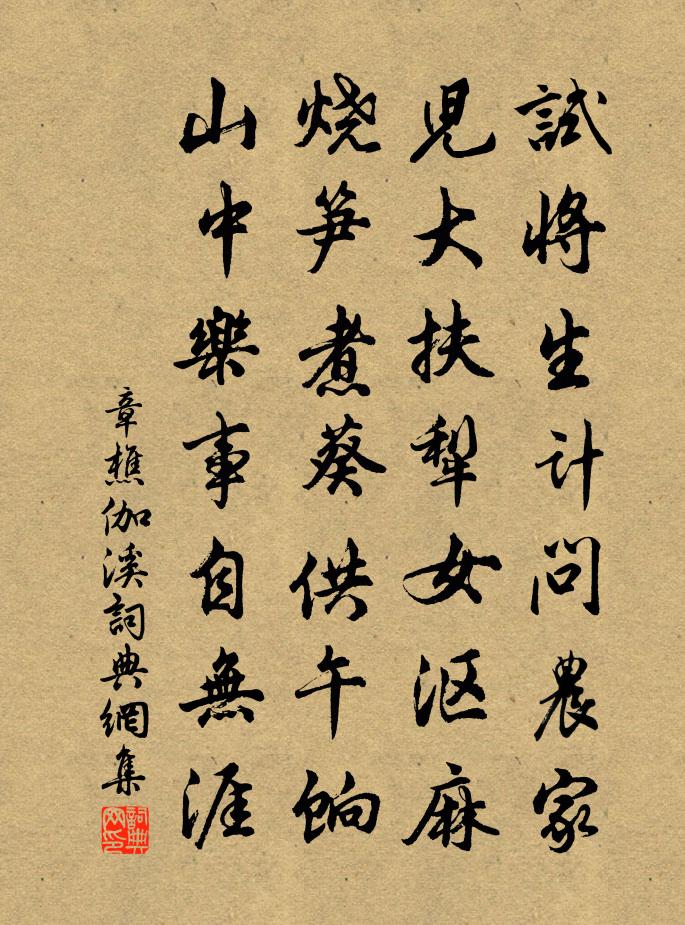 試將生計問農家
兒大扶犁女沤麻
烧笋煮葵供午餉
山中樂事自無涯
章樵伽溪詞典網集
詞典网印